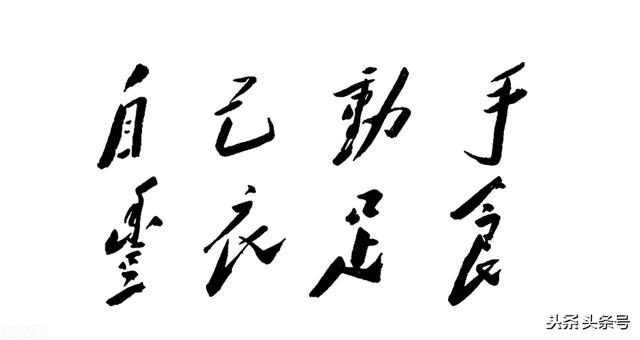 自己動手
豐衣足食
头条 头条号